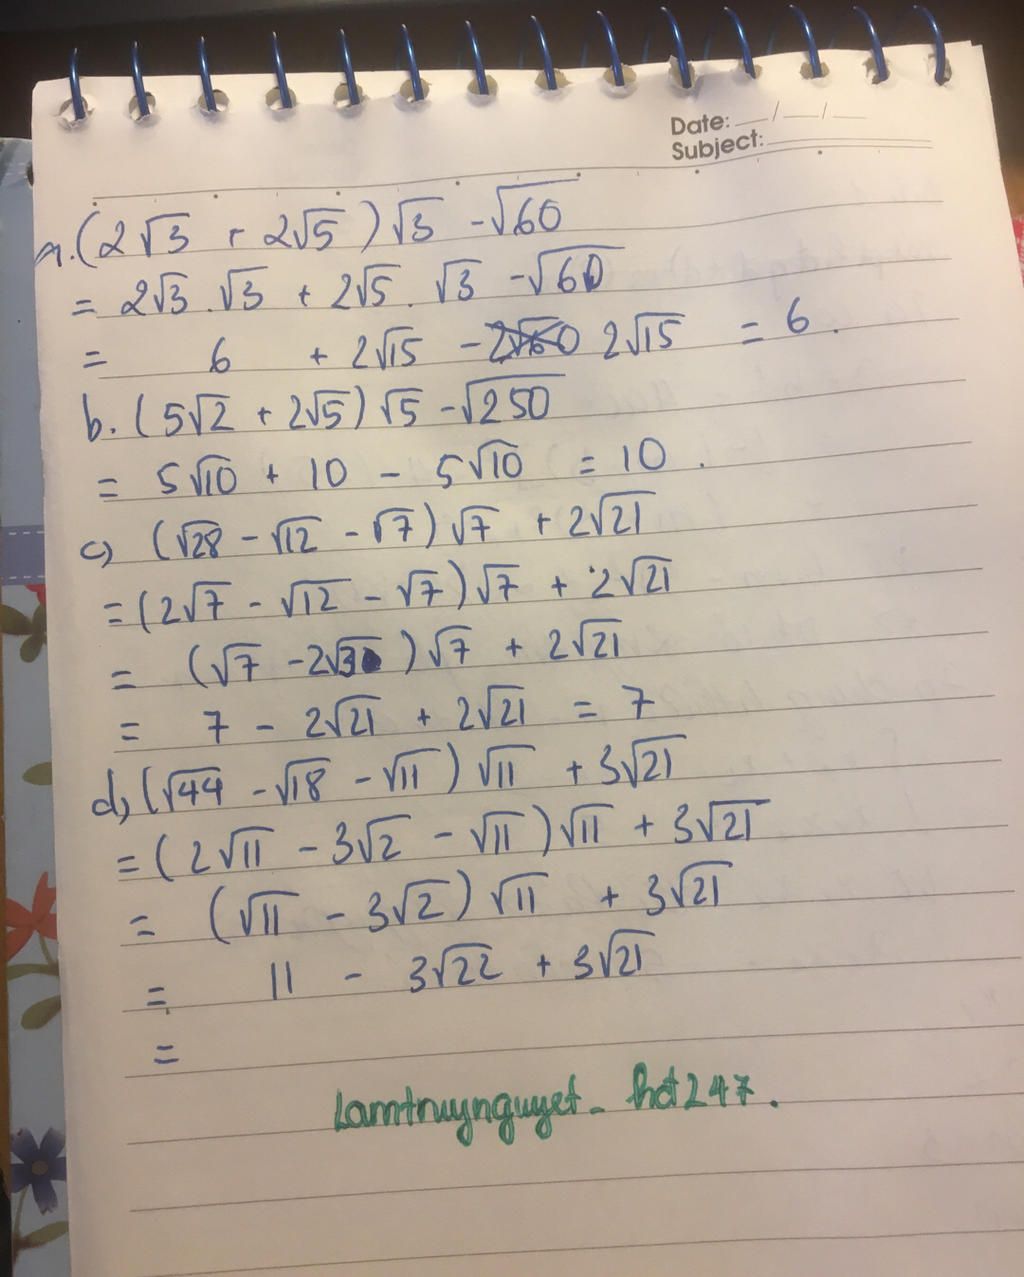 Date: __/__/__
Subject:
a. (2√3 + 2√5)√3 - √60
= 2√3 . √3 + 2√5 . √3 - √60
= 6 + 2√15 - 2√15 = 6 .
b. (5√2 + 2√5)√5 - √250
= 5√10 + 10 - 5√10 = 10 .
c) (√28 - √12 - √7)√7 + 2√21
= (2√7 - √12 - √7)√7 + 2√21
= (√7 - 2√3)√7 + 2√21
= 7 - 2√21 + 2√21 = 7
d) (√44 - √18 - √11)√11 + 3√21
= (2√11 - 3√2 - √11)√11 + 3√21
= (√11 - 3√2)√11 + 3√21
= 11 - 3√22 + 3√21
=
Lamtruynguyet - hd247.